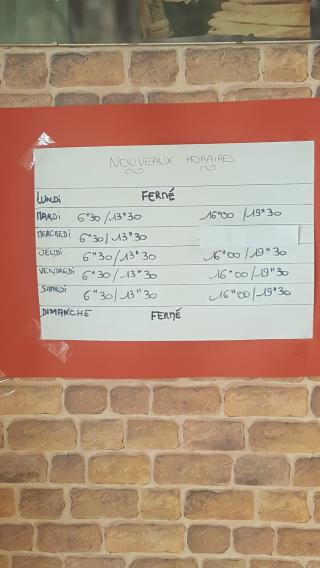 NOUVEAUX HORAIRES
LUNDI FERMÉ
MARDI 6H30/13H30 16H00/19H30
MERCREDI 6H30/13H30
JEUDI 6H30/13H30 16H00/19H30
VENDREDI 6H30/13H30 16H00/19H30
SAMEDI 6H30/13H30 16H00/19H30
DIMANCHE FERMÉ